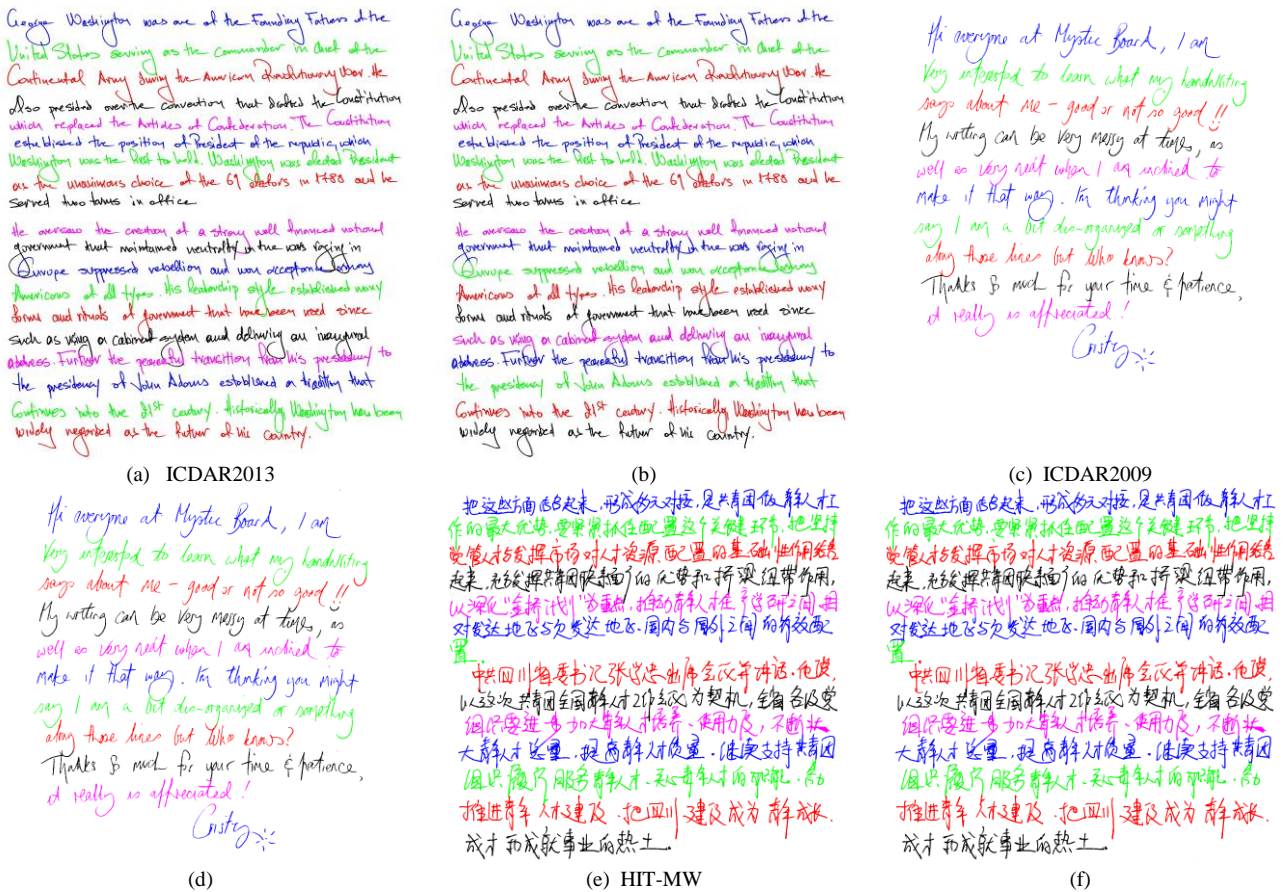 George Washington was one of the Founding Fathers of the
United States serving as the commander in chief of the
Continental Army during the American Revolutionary War. He
also presided over the convention that drafted the Constitution
which replaced the Articles of Confederation. The Constitution
established the position of President of the republic, which
Washington was the first to hold. Washington was elected President
as the unanimous choice of the 69 electors in 1788 and he
served two terms in office
He oversaw the creation of a strong well financed national
government that maintained neutrality in the wars raging in
Europe suppressed rebellion and won acceptance among
Americans of all types. His leadership style established many
forms and rituals of government that have been used since
such as using a cabinet system and delivering an inaugural
address. Further the peaceful transition from his presidency to
the presidency of John Adams established a tradition that
Continues into the 21st century. Historically Washington has been
widely regarded as the father of his country.
(a) ICDAR2013
George Washington was one of the Founding Fathers of the
United States serving as the commander in chief of the
Continental Army during the American Revolutionary War. He
also presided over the convention that drafted the Constitution
which replaced the Articles of Confederation. The Constitution
established the position of President of the republic, which
Washington was the first to hold. Washington was elected President
as the unanimous choice of the 69 electors in 1788 and he
served two terms in office
He oversaw the creation of a strong well financed national
government that maintained neutrality in the wars raging in
Europe suppressed rebellion and won acceptance among
Americans of all types. His leadership style established many
forms and rituals of government that have been used since
such as using a cabinet system and delivering an inaugural
address. Further the peaceful transition from his presidency to
the presidency of John Adams established a tradition that
Continues into the 21st century. Historically Washington has been
widely regarded as the father of his country.
(b)
Hi everyone at Mystic Board, I am
Very interested to learn what my handwriting
says about me - good or not so good !!
My writing can be very messy at times, as
well as very neat when I am inclined to
make it that way. I'm thinking you might
say I am a bit dis-organized or something
along those lines but who knows?
Thanks so much for your time & patience,
it really is appreciated!
Cristy
(c) ICDAR2009
Hi everyone at Mystic Board, I am
Very interested to learn what my handwriting
says about me - good or not so good !!
My writing can be very messy at times, as
well as very neat when I am inclined to
make it that way. I'm thinking you might
say I am a bit dis-organized or something
along those lines but who knows?
Thanks so much for your time & patience,
it really is appreciated!
Cristy
(d)
把这些方面结合起来,形成多元对接,是共青团做青年人才工
作的最大优势,要紧紧抓住配置这个关键环节,把坚持
党管人才与发挥市场对人才资源配置的基础性作用结合
起来,充分发挥共青团联系面广的优势和桥梁纽带作用,
以深化"金桥计划"为重点,推动青年人才在产学研之间,相
对发达地区与欠发达地区、国内与国外之间的有效配
置.
中共四川省委书记张学忠出席会议并讲话.他说,
以这次共青团全国青年人才工作会议为契机,全省各级党
组织要进一步加大青年人才培养、使用力度,不断壮
大青年人才总量,提高青年人才质量.继续支持共青团
组织履行服务青年人才、关心青年人才的职能.努力
推进青年人才建设,把四川建设成为青年成长、
成才和成就事业的热土.
(e) HIT-MW
把这些方面结合起来,形成多元对接,是共青团做青年人才工
作的最大优势,要紧紧抓住配置这个关键环节,把坚持
党管人才与发挥市场对人才资源配置的基础性作用结合
起来,充分发挥共青团联系面广的优势和桥梁纽带作用,
以深化"金桥计划"为重点,推动青年人才在产学研之间,相
对发达地区与欠发达地区、国内与国外之间的有效配
置.
中共四川省委书记张学忠出席会议并讲话.他说,
以这次共青团全国青年人才工作会议为契机,全省各级党
组织要进一步加大青年人才培养、使用力度,不断壮
大青年人才总量,提高青年人才质量.继续支持共青团
组织履行服务青年人才、关心青年人才的职能.努力
推进青年人才建设,把四川建设成为青年成长、
成才和成就事业的热土.
(f)